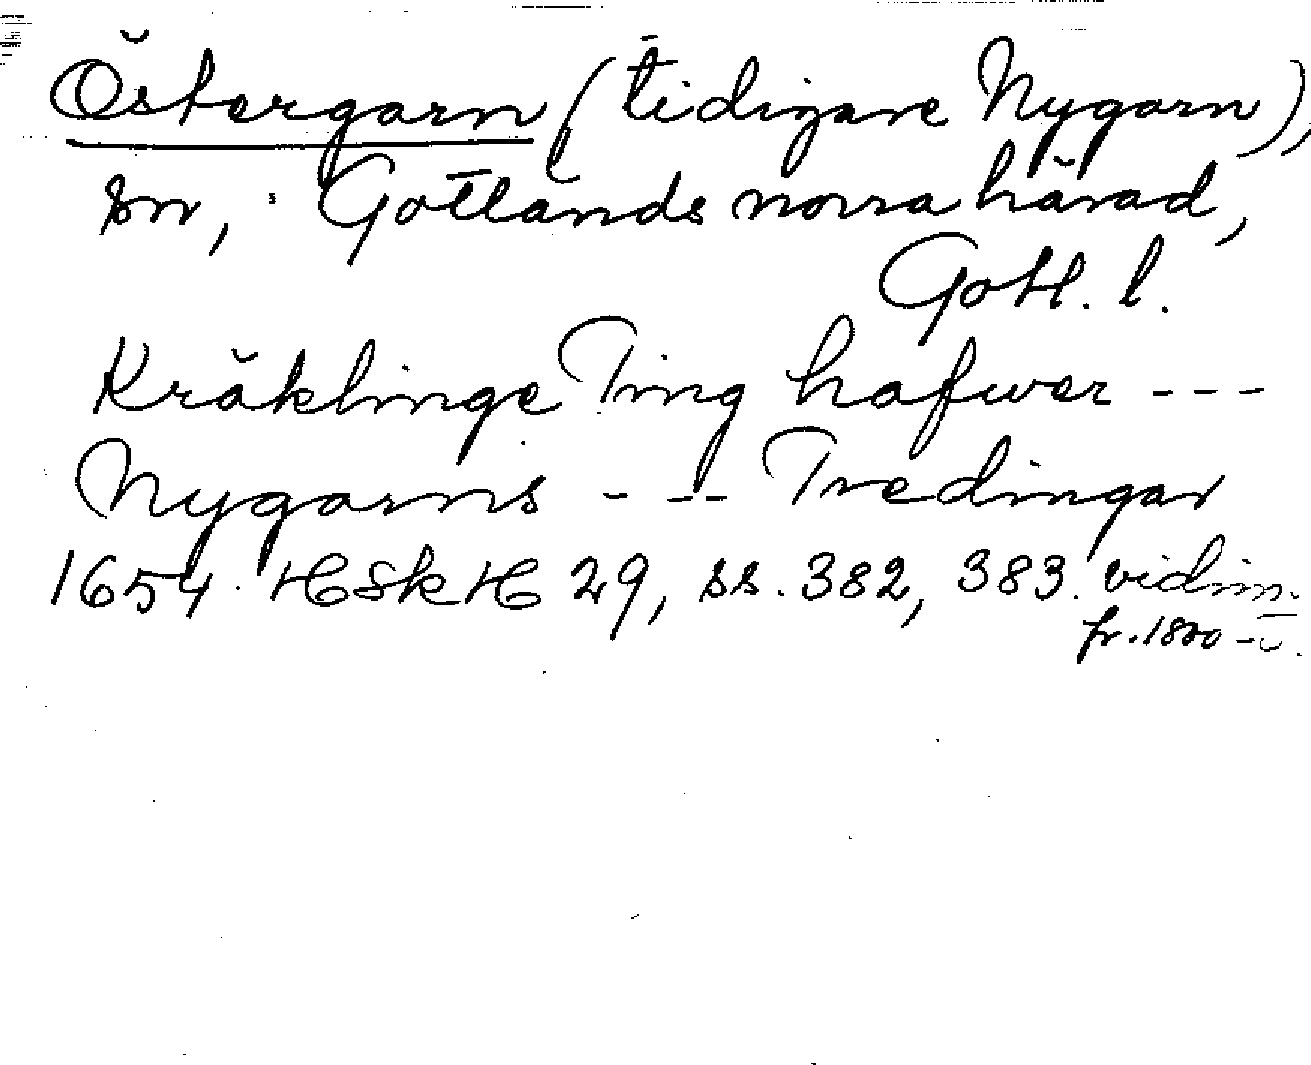 Östergarn (tidigare Nygarn),
sn, Gotlands norra härad,
Gotl. l.
Kräklinge Ting hafwer ---
Nygarns --- Tredingar
1654. HSkH 29, ss. 382, 383. vidim.
fr. 1800-